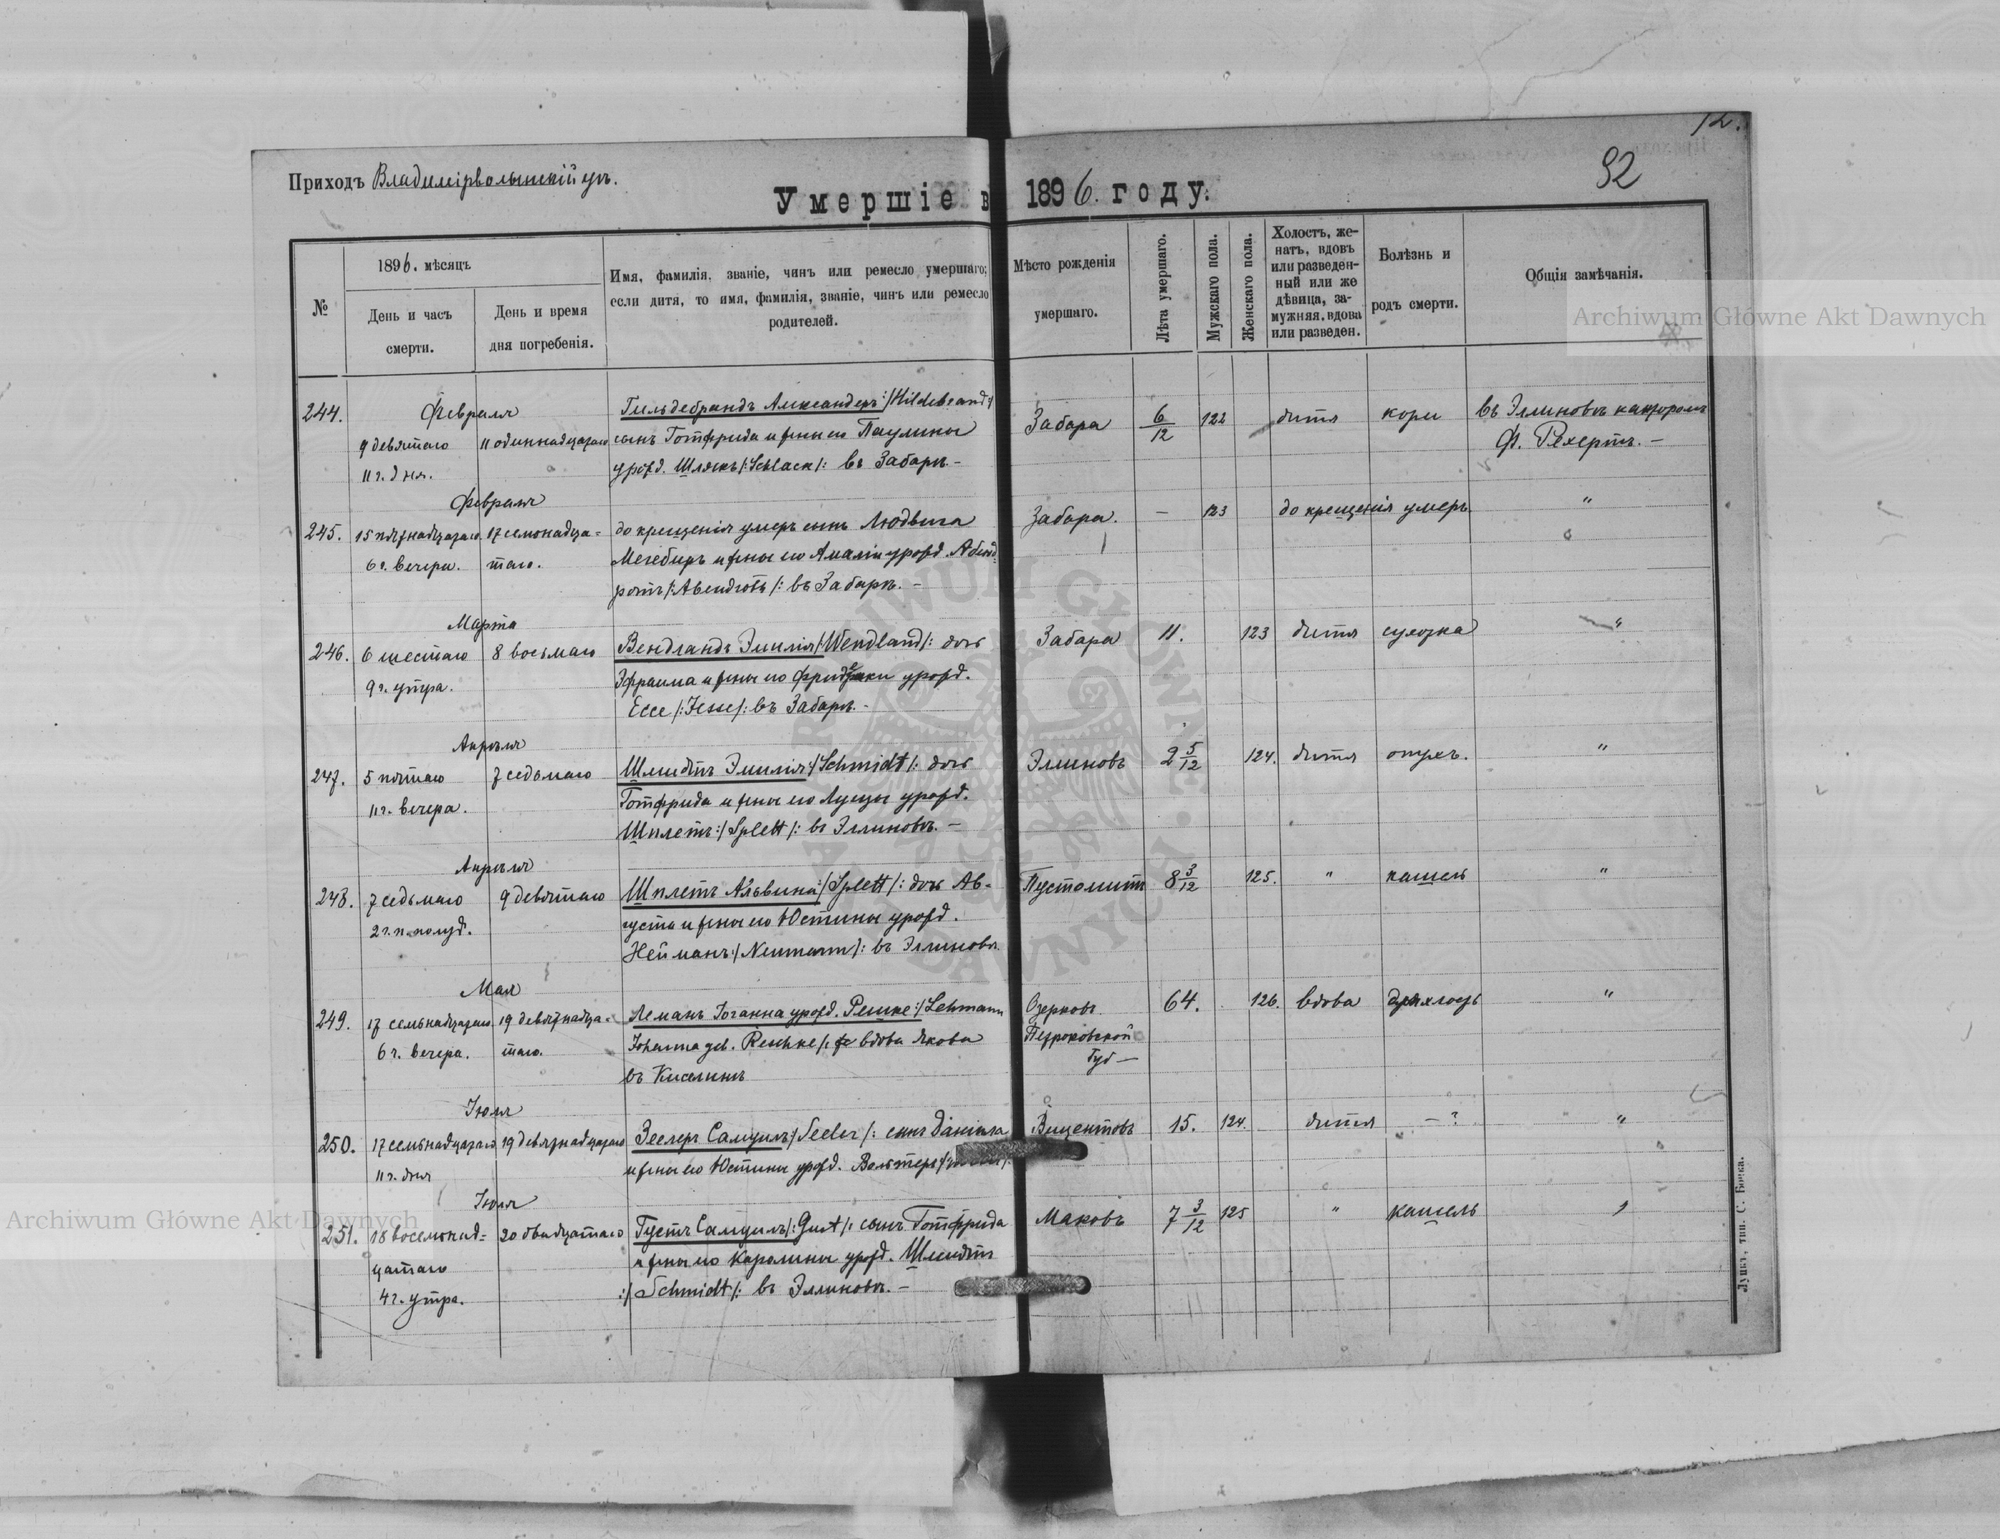 12.
92
Приходъ Владимірволынскій уѣ.
Умершіе в 1896. году.
№
1896. мѣсяцъ
День и часъ смерти.
День и время дня погребенія.
Имя, фамилія, званіе, чинъ или ремесло умершаго;
если дитя, то имя, фамилія, званіе, чинъ или ремесло
родителей.
Мѣсто рожденія умершаго.
Лѣта умершаго.
Мужскаго пола.
Женскаго пола.
Холостъ, же-
натъ, вдовъ
или разведен-
ный или же
дѣвица, за-
мужняя, вдова
или разведен.
Болѣзнь и родъ смерти.
Общія замѣчанія.
Archiwum Główne Akt Dawnych
244. Февраля Гильдебрандъ Александеръ:/Hildebrand/:
9 девятаго 11 одиннадцатаго сынъ Готфрида и жены его Паулины Забара 6/12 122 дитя кори въ Эллиновъ канторомъ
11 г. дня. урожд. Шлякъ/:Schlack/: въ Забарѣ.- Ф. Рехертъ.-
Февраля
245. 15 пятнадцатаго 17 семонадца= до крещенія умеръ сынъ Людвига Забара. - 123 до крещенія умеръ "
6 г. вечера. таго. и жены его Амаліи урожд. Абенд=
ротъ/:Abendroth/: въ Забарѣ.-
Марта
246. 6 шестаго 8 восьмаго Вендландъ Эмилія/:Wendland/: дочь Забара 11. 123 дитя сухотка "
9 г. утра. Эфраима и жены его урожд.
Ессе/:Jesse/: въ Забарѣ.-
Апрѣля
247. 5 пятаго 7 седьмаго Шмидтъ Эмилія:/Schmidt/: дочь Эллиновъ 2 5/12 124. дитя опухъ. "
11 г. вечера. Готфрида и жены его Луизы урожд.
Шплетъ:/Splett/: въ Эллиновѣ.-
Апрѣля
248. 7 седьмаго 9 девятаго Шплетъ Альвина:/Splett/: дочь Ав- Пустомитъ 8 3/12 125. " кашель "
2 г. п. полуд. густа и жены его Юстины урожд.
Нейманъ:/Neumann/: въ Эллиновѣ.
Мая
249. 17 семьнадцатаго 19 девятнадца- Леманъ Іоганна урожд. Решке:/Lehmann Озерковъ 64. 126. вдова дряхлость "
6 г. вечера. таго. Johanna geb. Reschke/: вдова Якова Петроковской
въ Киселинъ Губ-
Іюля
250. 17 семьнадцатаго 19 девятнадцатаго Зеелеръ Самуилъ/:Seeler/: сынъ Даніила Вицентовъ 15. 124. дитя -? "
11 г. дня и жены его Юстины урожд. Вольтеръ
Іюля
251. 18 восемонад= 20 двадцатаго Густъ Самуилъ/:Gust/: сынъ Готфрида Маковъ 7 3/12 125 " кашель "
цатаго и жены его Каролины урожд. Шмидтъ
4 г. утра. :/Schmidt/: въ Эллиновѣ.-
Луцкъ, тип. С. Бокка.
Archiwum Główne Akt Dawnych
ARCHIWUM GŁÓWNE AKT DAWNYCH